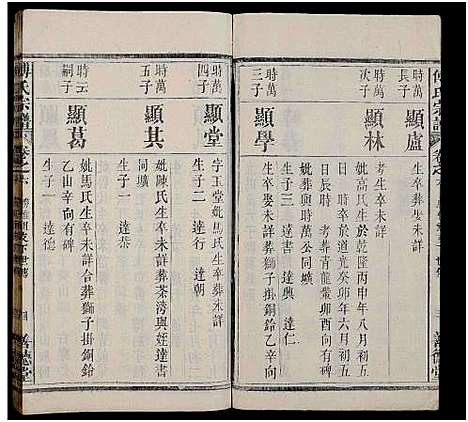 傅氏宗譜
善德堂
時萬
長子
顯廬
考生卒未詳
時萬
次子
顯林
妣高氏生於乾隆丙申八月初五
日時卒於道光癸卯年六月初五
日辰時考葬青龍
妣葬與時萬公同壙
生子三 達書 達興 達仁
時萬
三子
顯學
生卒娶未詳葬獅子掛銅鈴乙辛向
時萬
四子
顯堂
字玉堂妣馬氏生卒未詳
生子二 達行 達朝
時萬
五子
顯其
妣陳氏生卒未詳葬茶灣與姪達書
同壙
生子一 達恭
時云
嗣子
顯葛
妣馬氏生卒未詳合葬獅子掛銅鈴
乙山辛向有碑
生子一 達德
傅氏宗譜
善德堂